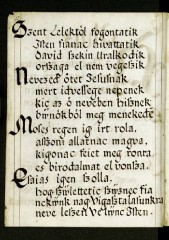 Szent Lelektöl fogontatik
Isten fianac hivattatik
David szekin Uralkodik
orszaga el nem vegeszik
Nevezed ötet Jesusnak
mert idvessege nepenek
kic az ö neveben hisznek
bünökböl meg menekede
Moses regen ig irt rola,
asszoni allatnac magva,
kigionac feiet meg ronta
es birodalmat el vonsza.
Esaias igen szolla.
hog születtetic szüznec fia
nekünk nag vigasztalasunkra
neve leszen